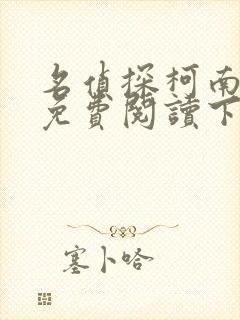 名偵探柯南
免費閱讀下
塞卜哈